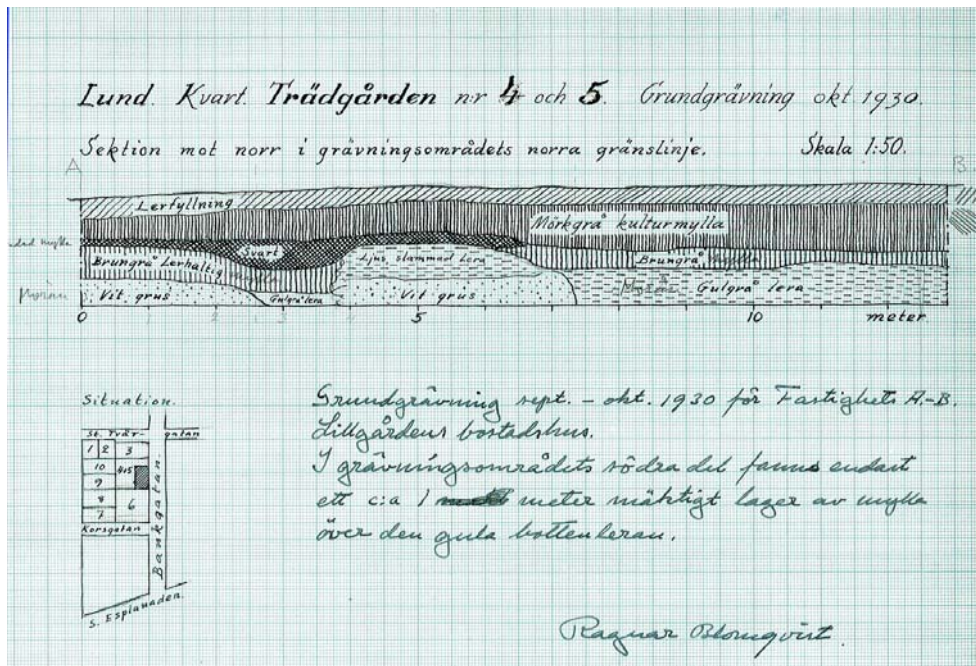 Lund. Kvart. Trädgården n:r 4 och 5. Grundgrävning okt. 1930.
Sektion mot norr i grävningsområdets norra gränslinje. Skala 1:50.
A B.
Lerfyllning
Mörkgrå kulturmylla
mylla
Svart
Brungrå Lerhaltig
Ljus, slammad Lera
Brungrå mylla
Vit grus
Gulgrå lera
Vit grus
Gulgrå lera
0 5 10 meter.
Situation.
St. Tvär- gatan
1 2 3
10 4o5
9
8 6
7
Korsgatan
Bankgatan.
S. Esplanaden.
Grundgrävning sept. – okt. 1930 för Fastighets A.-B.
Lillgårdens bostadshus.
I grävningsområdets södra del fanns endast
ett c:a 1 meter mäktigt lager av mylla
över den gula bottenleran.
Ragnar Blomqvist.